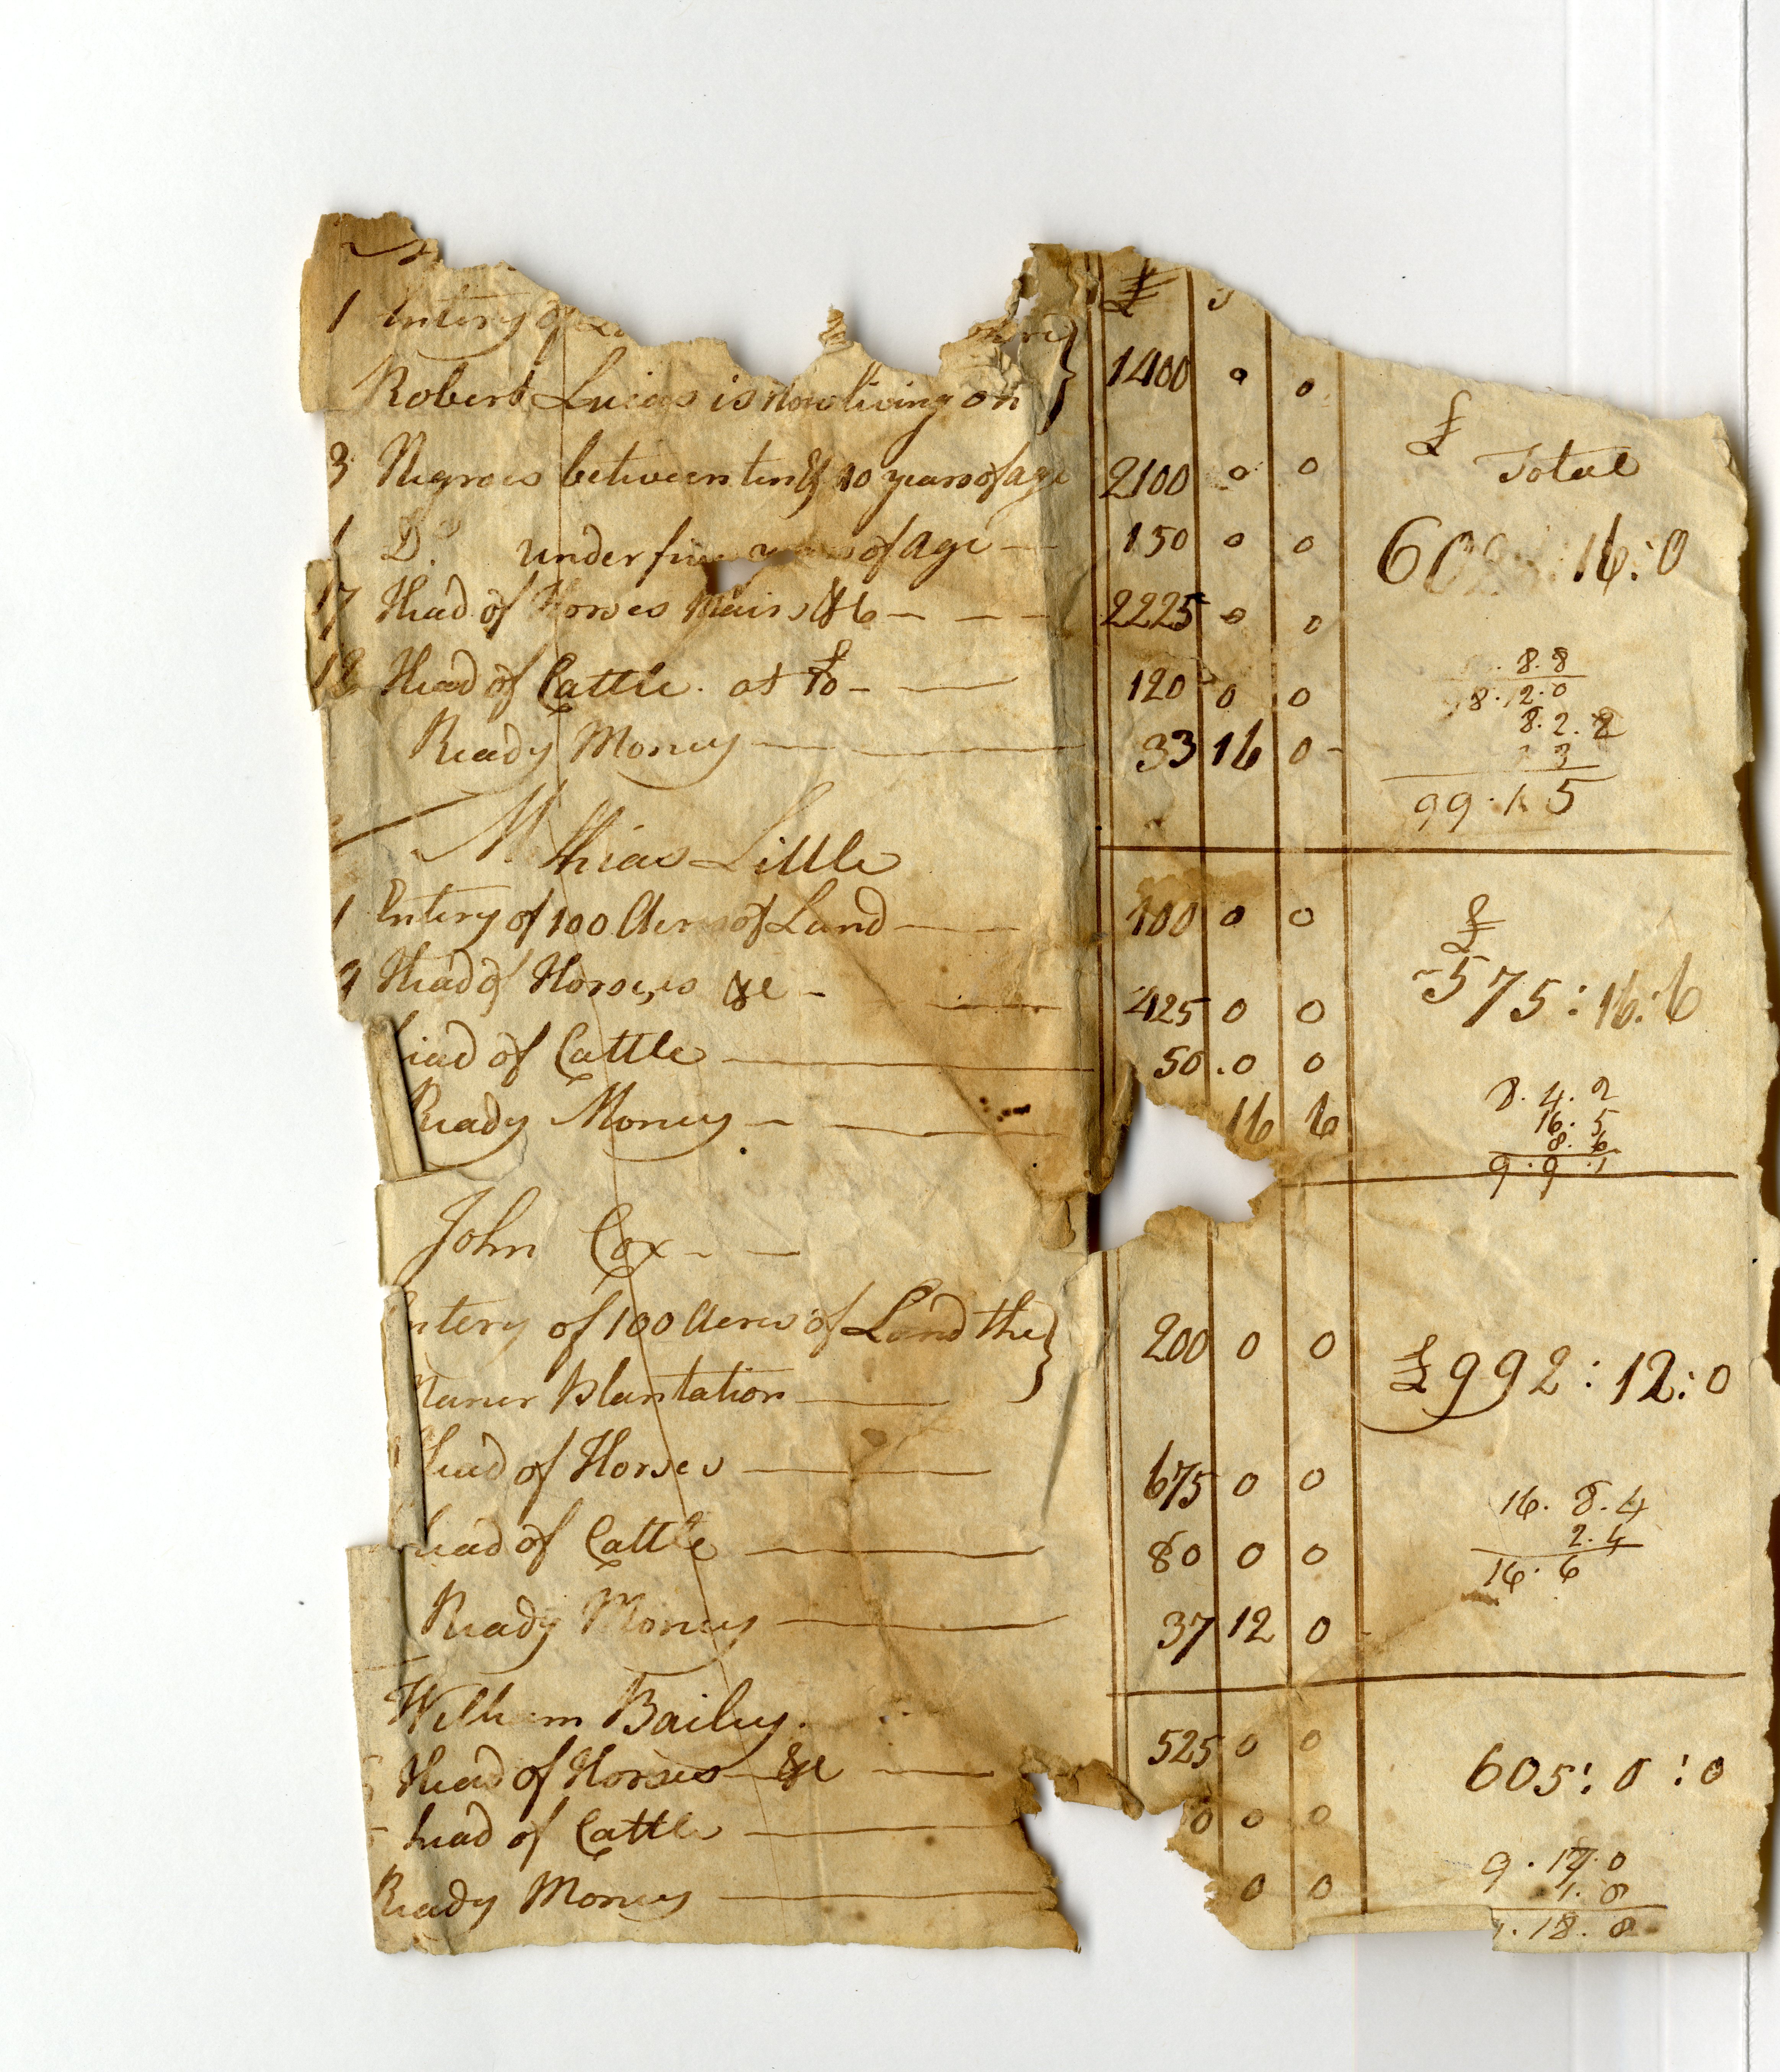 £ s
1 Entery of
Robert Lucas is now living on } 1400 0 0
£
Total
3 Negroes between ten & 40 years of age 2100 0 0
1 Do. under five years of age — 150 0 0
60 16:0
17 Head of Horses Mairs &c — — — 2225 0 0
Head of Cattle. at — — 120 0 0
Ready Money — — 33 16 0 -
8.8
8.12.0
8.2.2
3
99.15
Mathias Little
1 Entery of 100 Acres of Land — — 100 0 0
£
575:16:6
9 Head of Horses &c — — 425 0 0
head of Cattle — 50.0 0
Ready Money — — 16 6
8.4.2
16.5
8.6
9.9.1
John Cox - —
Entery of 100 Acres of Land the }
Maner Plantation — 200 0 0
£992:12:0
head of Horses — 675 0 0
head of Cattle — 80 0 0
Ready Money — 37 12 0
16.8.4
2.4
16.6
William Bailey.
Head of Horses &c — 525 0 0
605:0:0
head of Cattle — 0 0 0
Ready Money — 0 0
9.17.0
1.8
.18.8